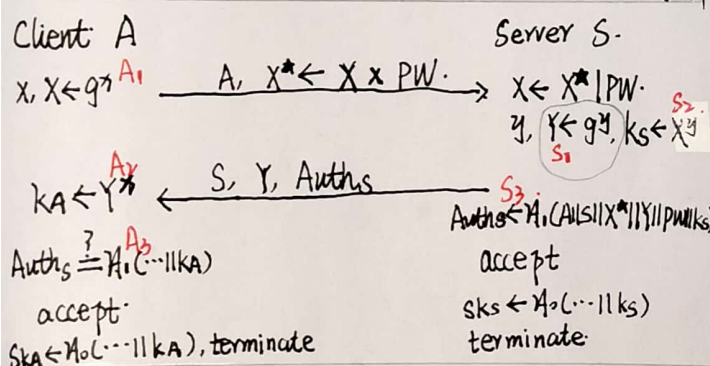 Client A
Server S.
x, X←g^x A₁
A, X*← X x PW.
X← X*|PW.
S₂.
y, Y←g^y, ks←X^y
S₁
A₂
kA←Y^x
S, Y, Auths
S₃.
Auths←H₁(A||S||X*||Y||PW||ks)
A₃
Auths ≟ H₁(···||kA)
accept
accept.
sks←H₀(···||ks)
SkA←H₀(···||kA), terminate
terminate.